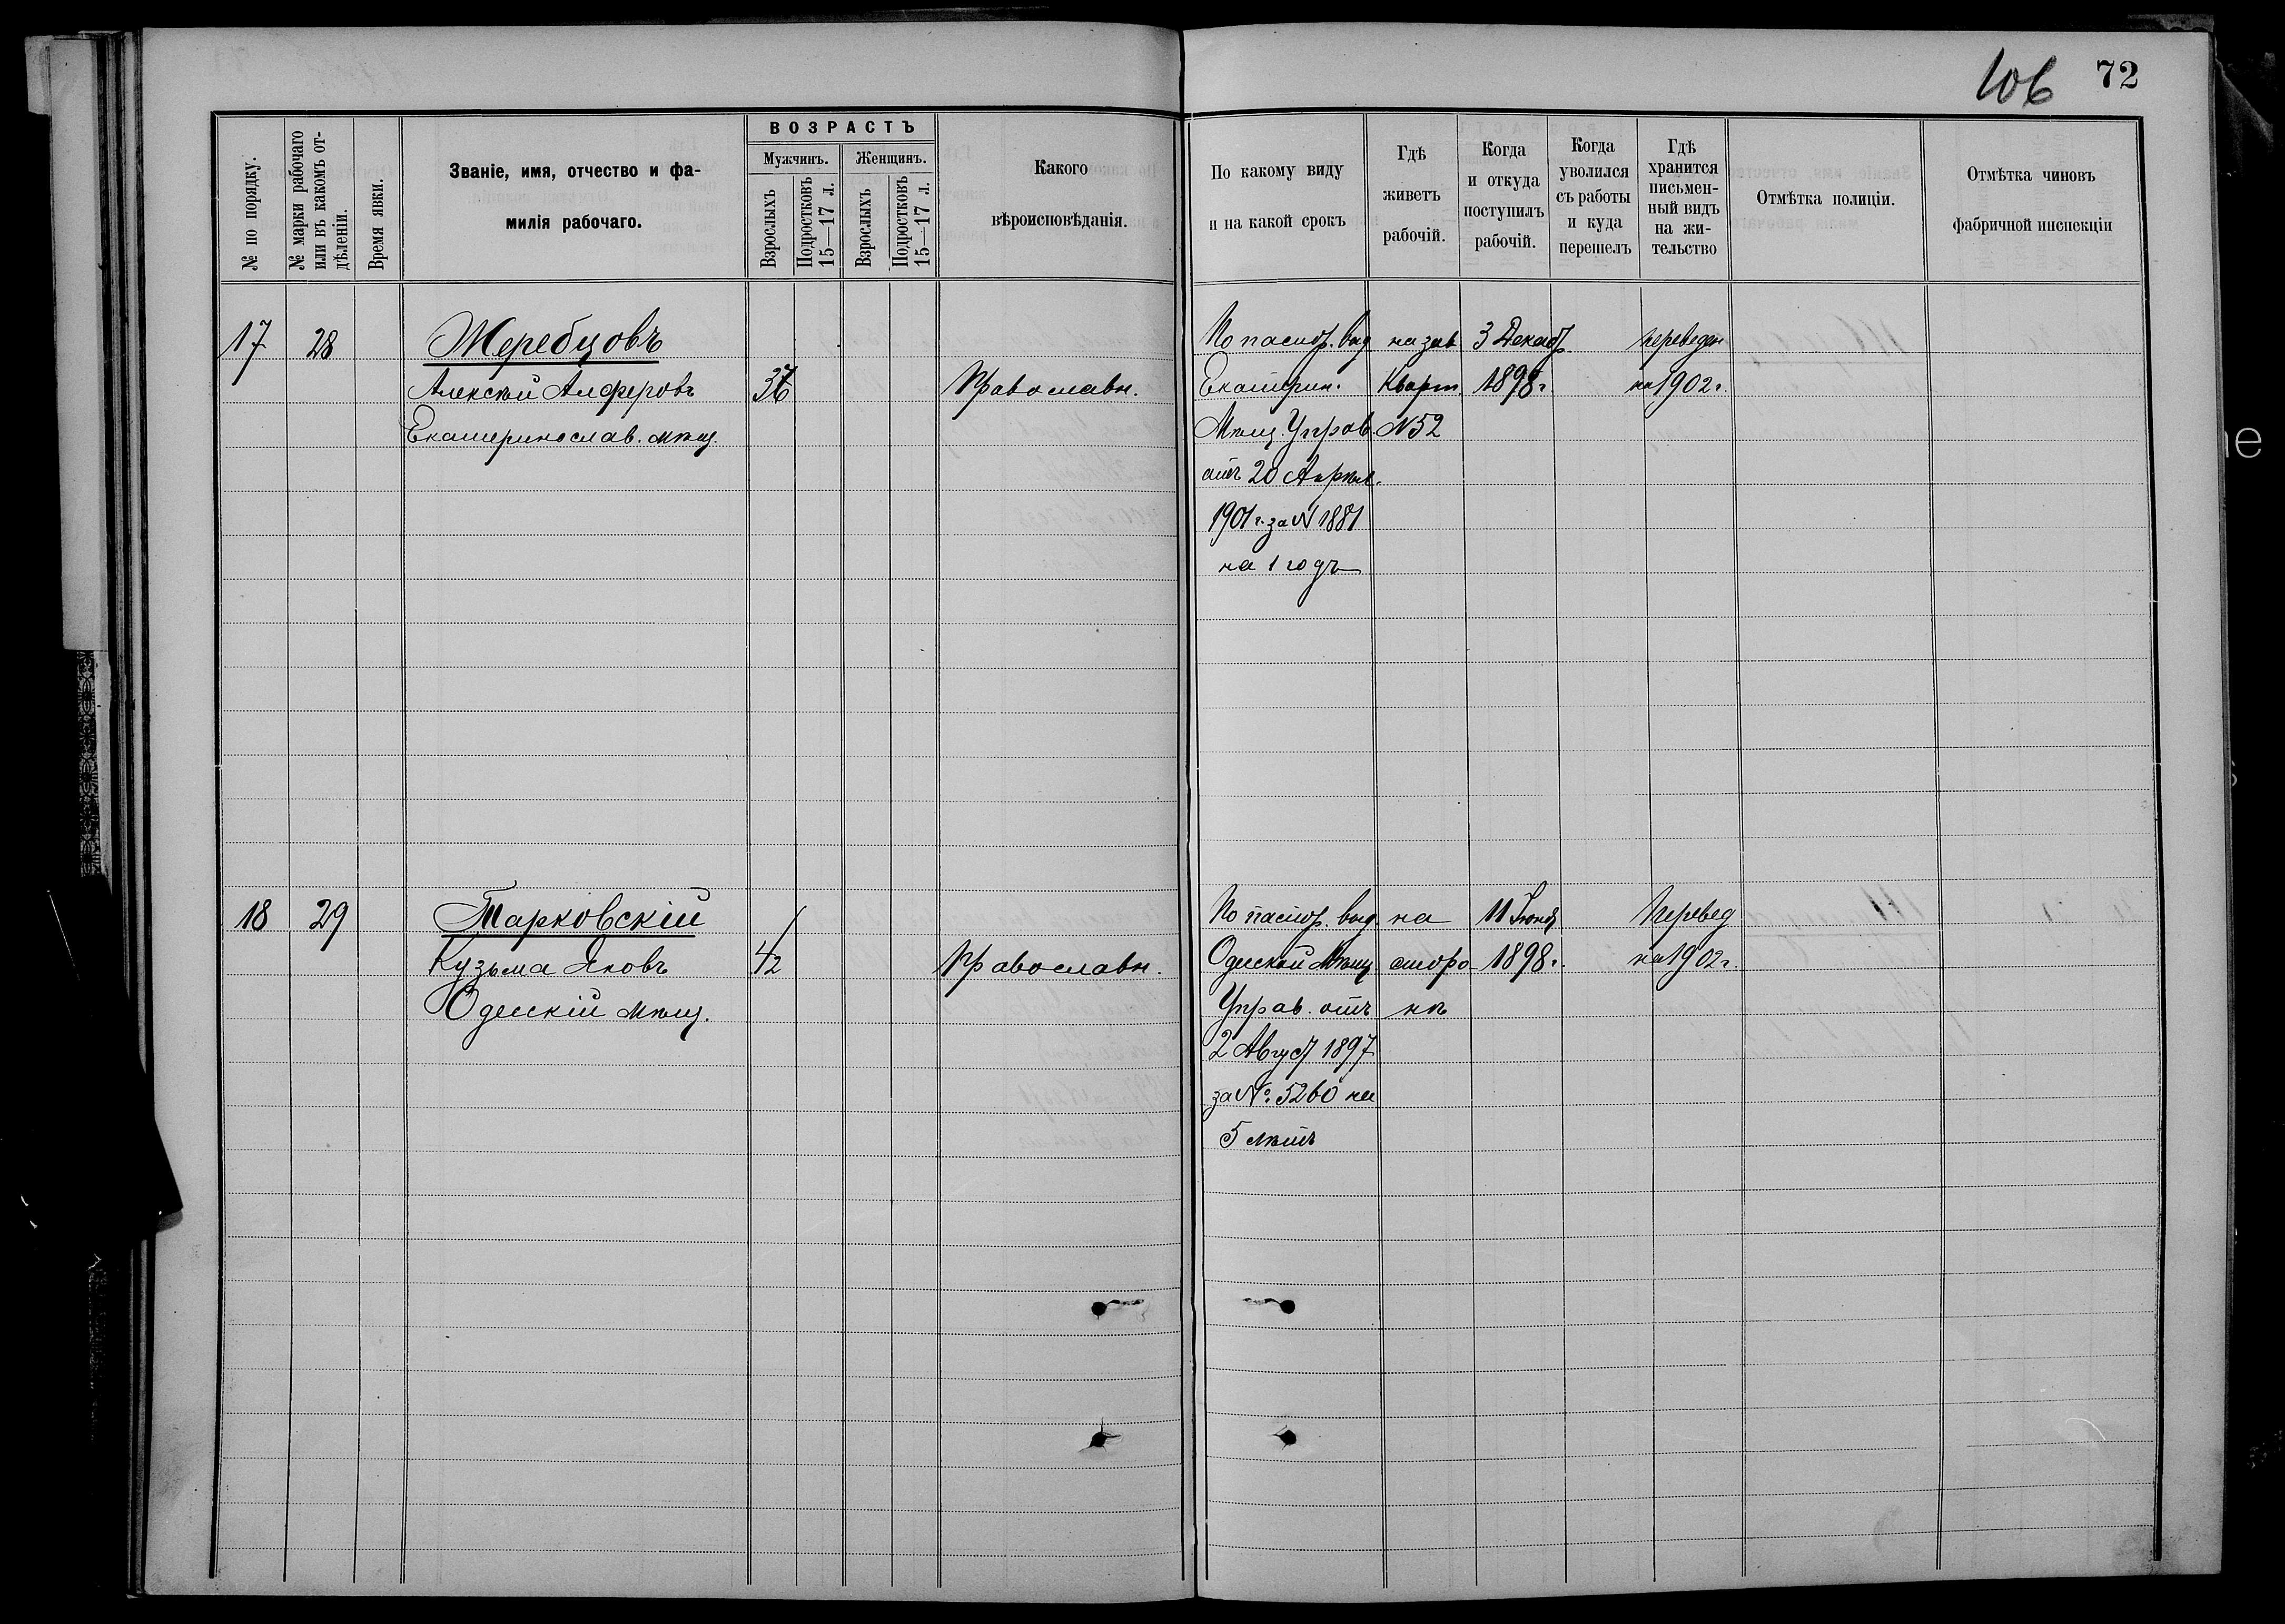 106 72
№ по порядку.
№ марки рабочаго
или въ какомъ от-
дѣленіи.
Время явки.
Званіе, имя, отчество и фа-
милія рабочаго.
ВОЗРАСТЪ
Мужчинъ.
Женщинъ.
Взрослыхъ
Подростковъ
15—17 л.
Взрослыхъ
Подростковъ
15—17 л.
Какого
вѣроисповѣданія.
По какому виду
и на какой срокъ
Гдѣ
живетъ
рабочій.
Когда
и откуда
поступилъ
рабочій.
Когда
уволился
съ работы
и куда
перешелъ
Гдѣ
хранится
письмен-
ный видъ
на жи-
тельство
Отмѣтка полиціи.
Отмѣтка чиновъ
фабричной инспекціи
17
28
Жеребцовъ
Алексѣй Алферовъ
Екатеринослав. мѣщ.
Православн.
По паспор. выд
Екатерин.
Мѣщ. Управ.
отъ 20 Апрѣл.
1901 г. за № 1881
на 1 годъ
на зав.
Кварт.
№ 52
3 Декабр
1898 г.
переведен
на 1902 г.
18
29
Тарковскій
Кузьма Яковъ
Одесскій мѣщ.
42
Православн.
По паспор. выд.
Одесской Мѣщ
Управ. отъ
2 Август 1897
за №: 5260 на
5 лѣтъ
на
сторо
нѣ
11
1898 г.
Перевед
на 1902 г.